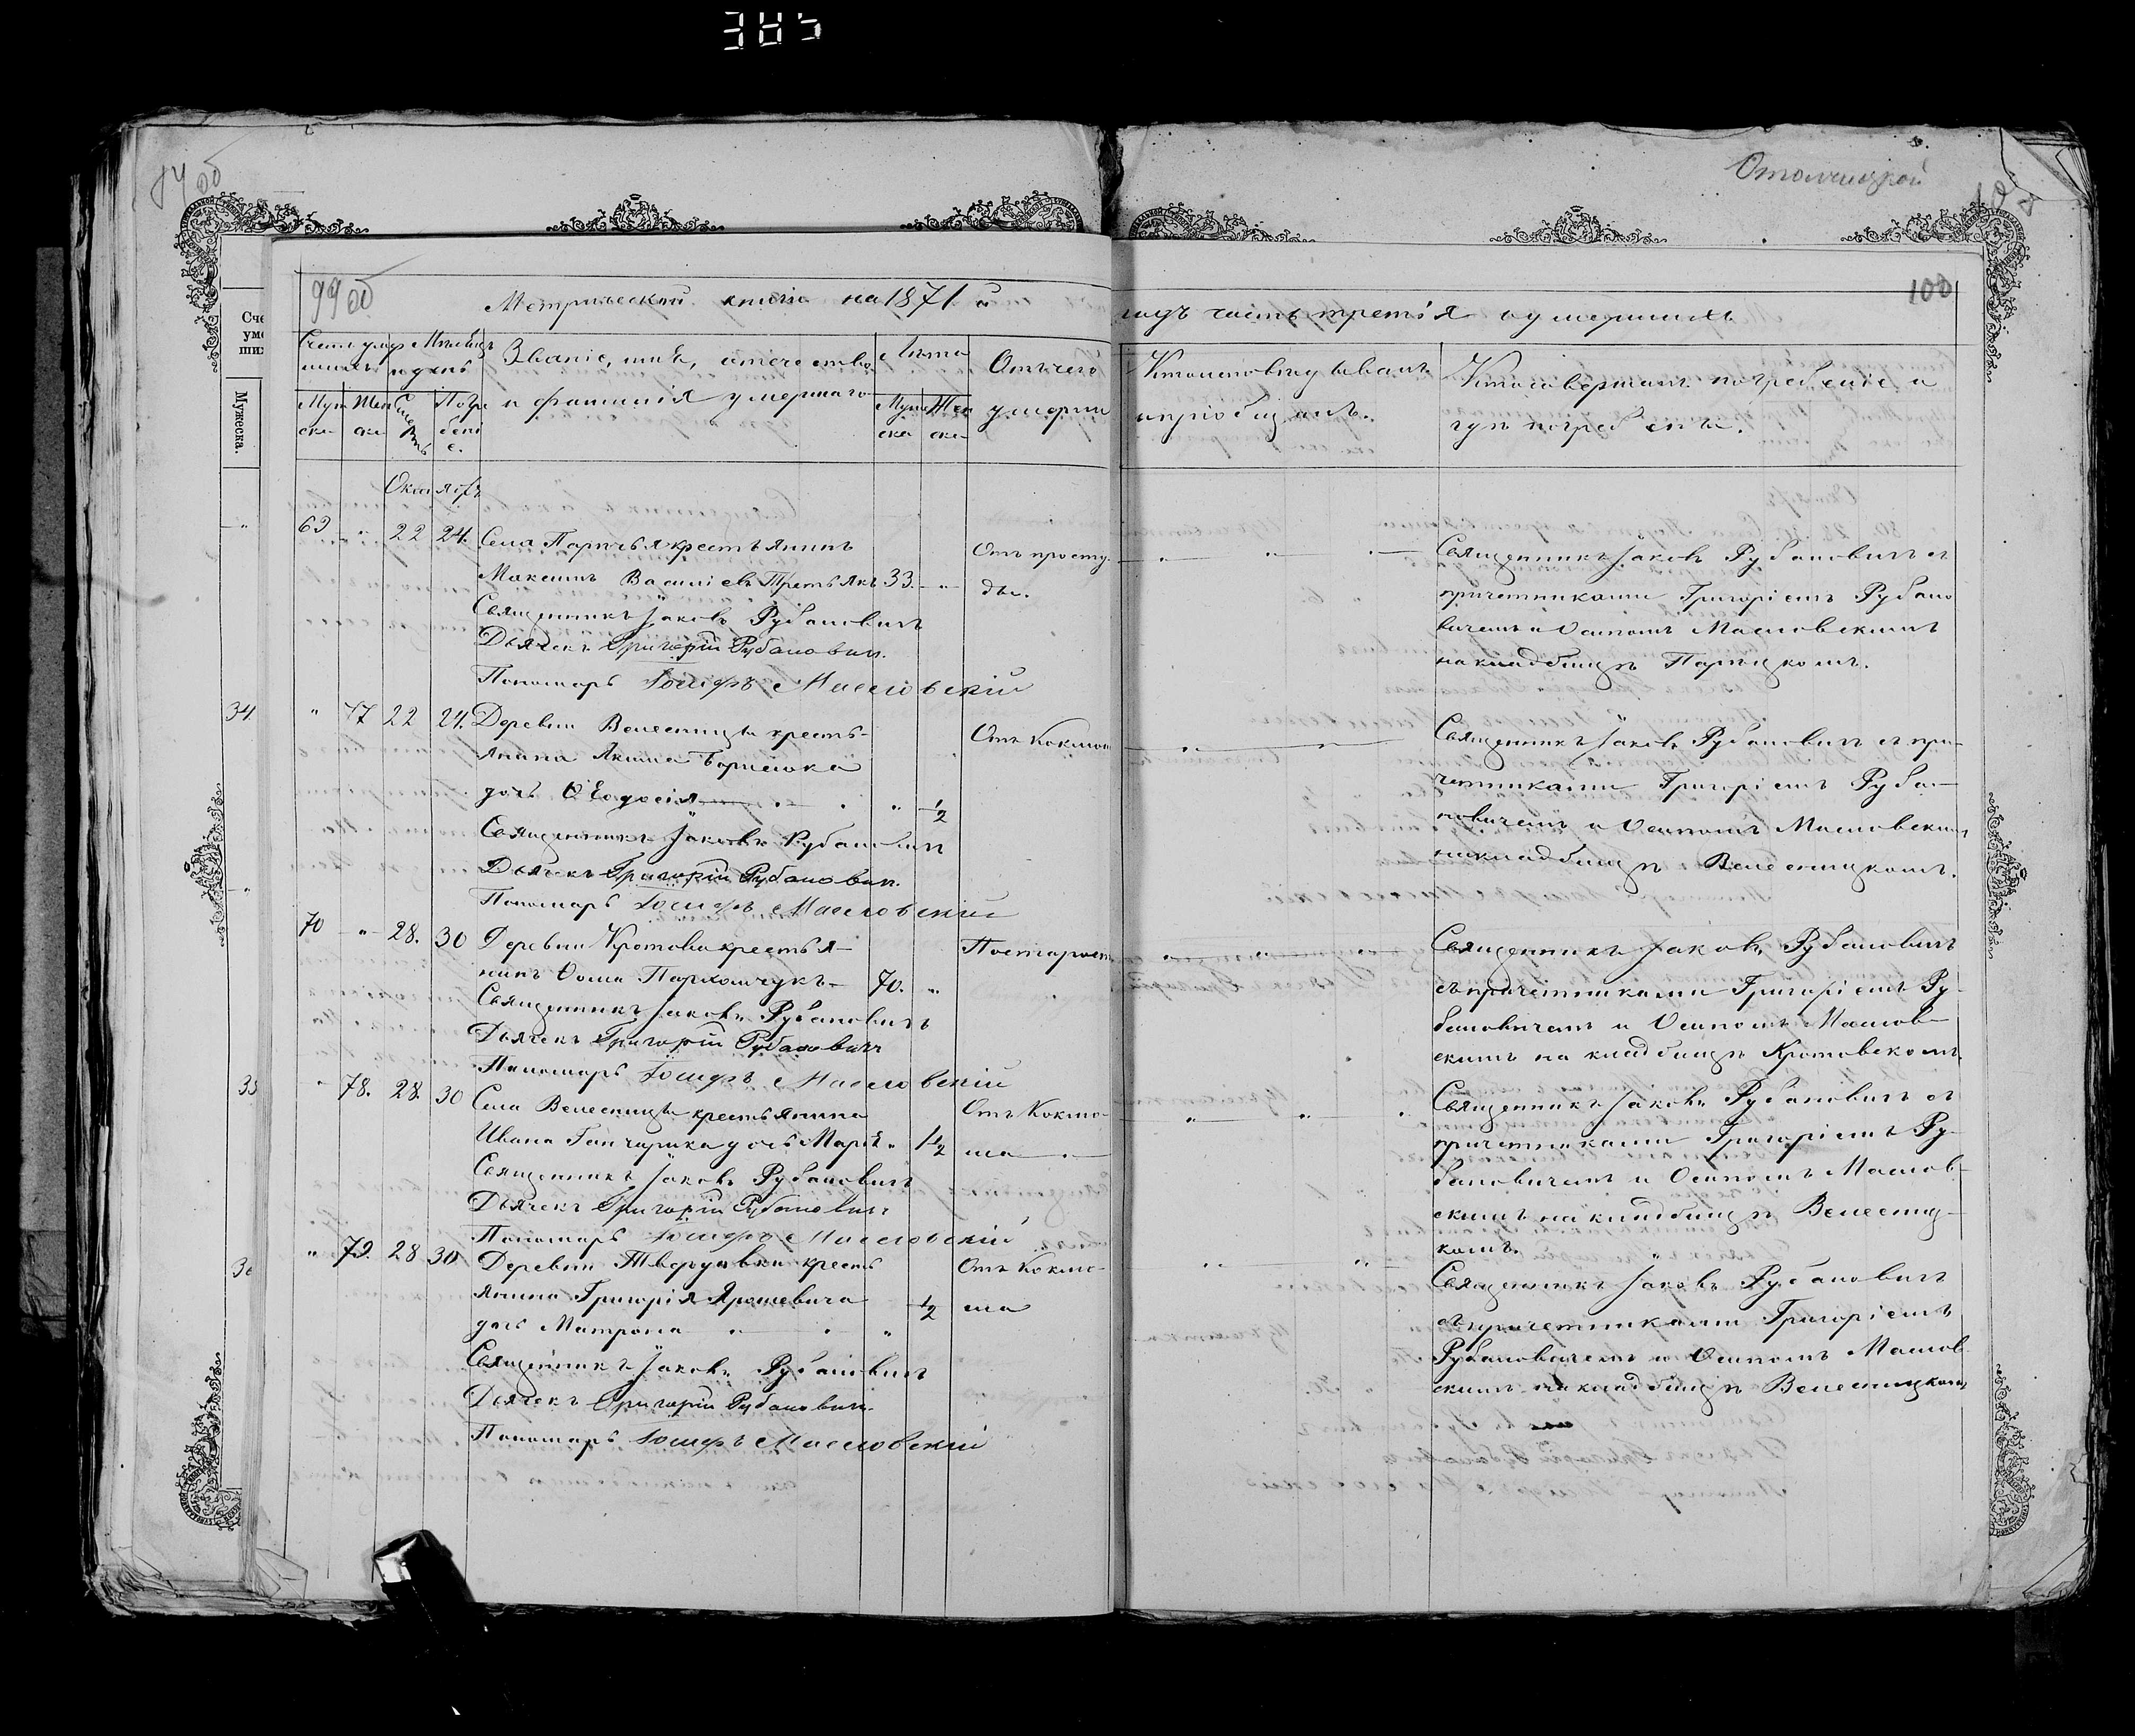 385
Отолчицкой
99 об
100
Метрической книги на 1871 й
годъ часть третія о умершихъ
Счетъ умер
шихъ
Мѣсяцъ
и день
Званіе, имя, отчество
и фамилія умершаго
Лѣта
Отъ чего
умерли
Кто исповѣдывалъ
и пріобщалъ.
Кто совершалъ погребеніе и
гдѣ погребены.
Муж
ска
Жен
ска
Смерть
Погре
бені
е.
Муже
ска
Жен
ска
Счё
уме
ших
Мужеска.
Октябрь
69 " 22 24. Села Парѣчья крестьянинъ
Максимъ Василіевъ Третьякъ 33. "
Отъ просту
ды.
Священникъ Іаковъ Рубановичъ
Дьячекъ Григорій Рубановичъ.
Пономарь Іосифъ Масловскій
Священникъ Іаковъ Рубановичъ съ
причетниками Григоріемъ Рубано
вичемъ и Осипомъ Масловскимъ
на кладбищѣ Парѣцкомъ.
34. " 77 22 24. Деревни Велесницы кресть-
янина Якима
дочь Ѳеодосія " 1/2
Отъ Коклюша
Священникъ Іаковъ Рубановичъ
Дьячекъ Григорій Рубановичъ.
Пономарь Іосифъ Масловскій
Священникъ Іаковъ Рубановичъ съ при-
четниками Григоріемъ Руба-
новичемъ и Осипомъ Масловскимъ
на кладбищѣ Велесницкомъ.
70 " 28. 30 Деревни Кротова крестья-
нинъ Ѳома Пархомчукъ- 70. "
По старости
Священникъ Іаковъ Рубановичъ
Дьячекъ Григорій Рубановичъ
Пономарь Іосифъ Масловскій
Священникъ Іаковъ Рубановичъ
съ причетниками Григоріемъ Ру-
бановичемъ и Осипомъ Маслов-
скимъ на кладбищѣ Кротовскомъ.
" 78. 28. 30 Села Велесницы крестьянина
Ивана Ганчарика дочь Марія " 1 1/2
Отъ Коклю-
ша
Священникъ Іаковъ Рубановичъ
Дьячекъ Григорій Рубановичъ
Пономарь Іосифъ Масловскій
Священникъ Іаковъ Рубановичъ съ
причетниками Григоріемъ Ру-
бановичемъ и Осипомъ Маслов-
скимъ на кладбищѣ Велесниц-
комъ.
" 79. 28 30 Деревни Твердовки кресть
янина Григорія Ярошевича
дочь Матрона " 1/2
Отъ Коклю-
ша
Священникъ Іаковъ Рубановичъ
Дьячекъ Григорій Рубановичъ.
Пономарь Іосифъ Масловскій
Священникъ Іаковъ Рубановичъ
съ причетниками Григоріемъ
Рубановичемъ и Осипомъ Маслов
скимъ на кладбищѣ Велесницкомъ